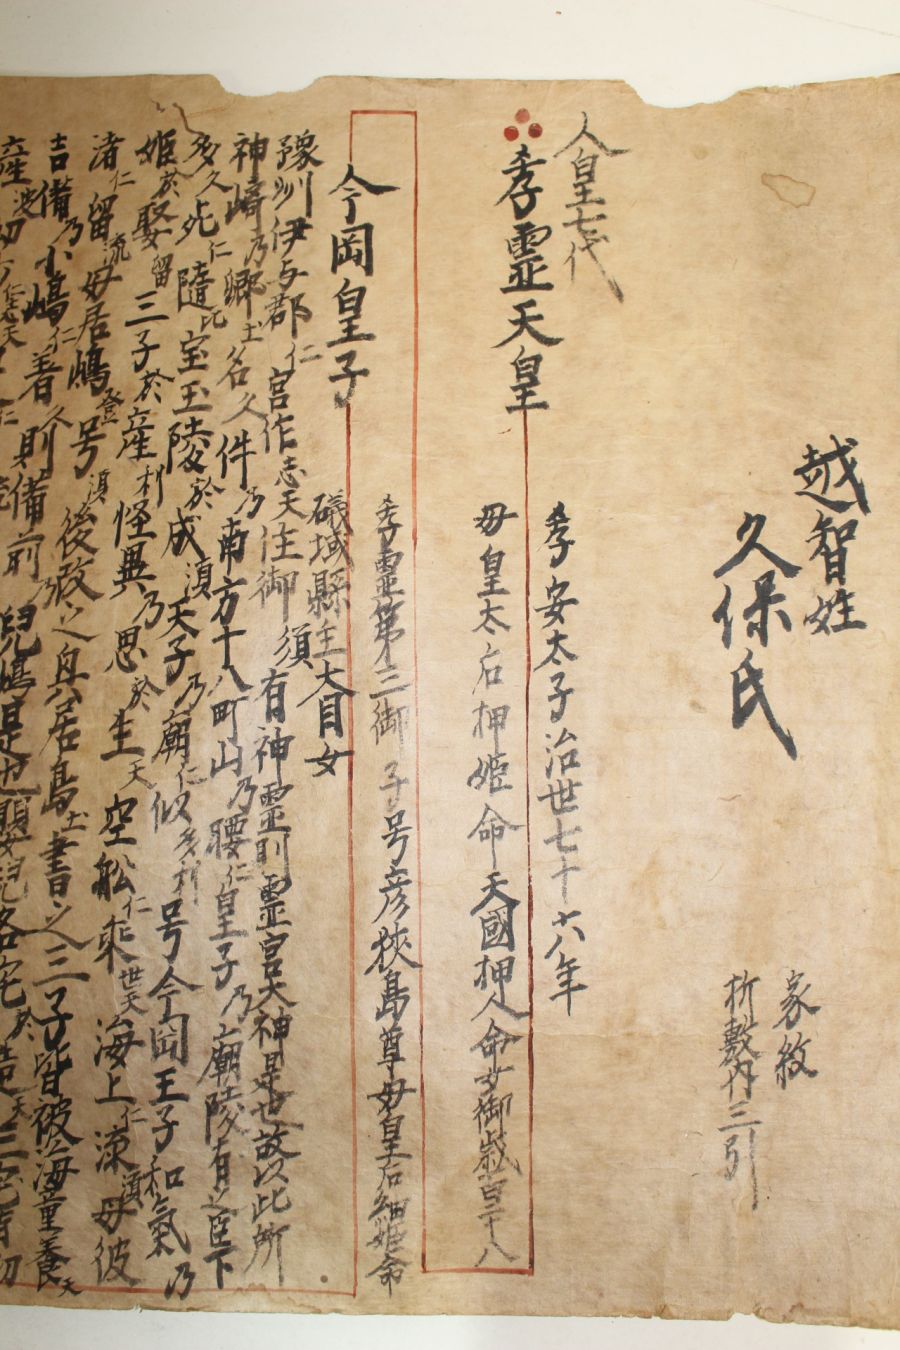 越智姓
久保氏
家紋
折敷内三引
人皇七代
孝霊天皇
孝安太子治世七十六八年
母皇太后押姫命天國押人命女御歳百十八
今岡皇子
孝霊第三御子号彦狭島尊母皇后細姫命
礒城縣主大目女
豫州伊与郡仁宮作志天住御須有神霊則霊宮大神是也故以此所
神崎乃郷土名久件乃南方十八町山乃腰仁皇子乃廟陵有之臣下
多久死仁隨比宝玉陵於成須天子乃廟仁似多利号今岡王子和氣乃
姫於娶留三子於産利怪異乃思於生天空舩仁乗世天海上仁流須母彼
渚仁留流母居嶋登号須後改之興居島土書之三子皆被海童養天
吉備乃小嶋仁着久則備前乃児嶋是也